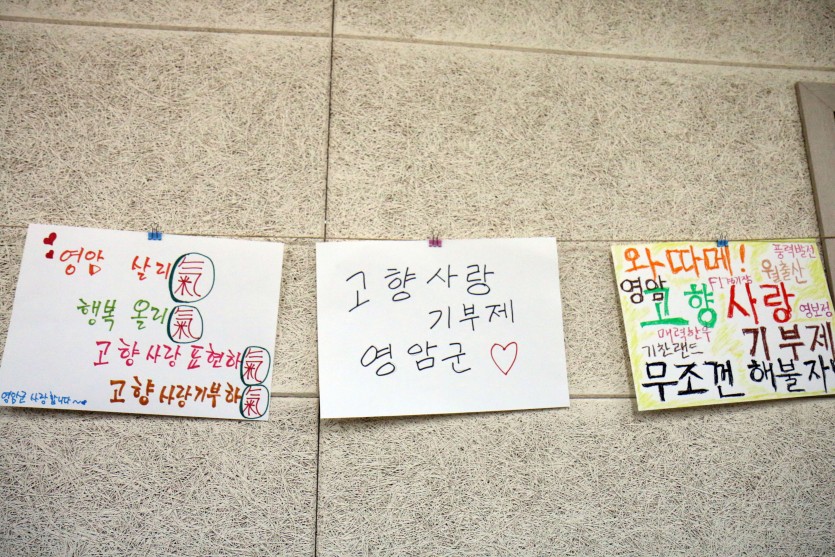 영암 살리氣
행복 올리氣
고향사랑 표현하氣
고향사랑기부하氣
영암군 사랑합니다~
고향사랑
기부제
영암군
와따메!
풍력발전
월출산
영암
고향 사랑
영보정
매력한우
기찬랜드
기부제
무조건 해불자